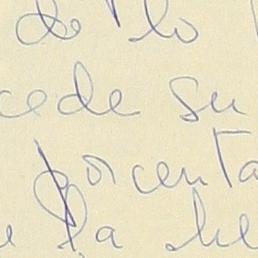 de lo
cede su
porcenta
la he